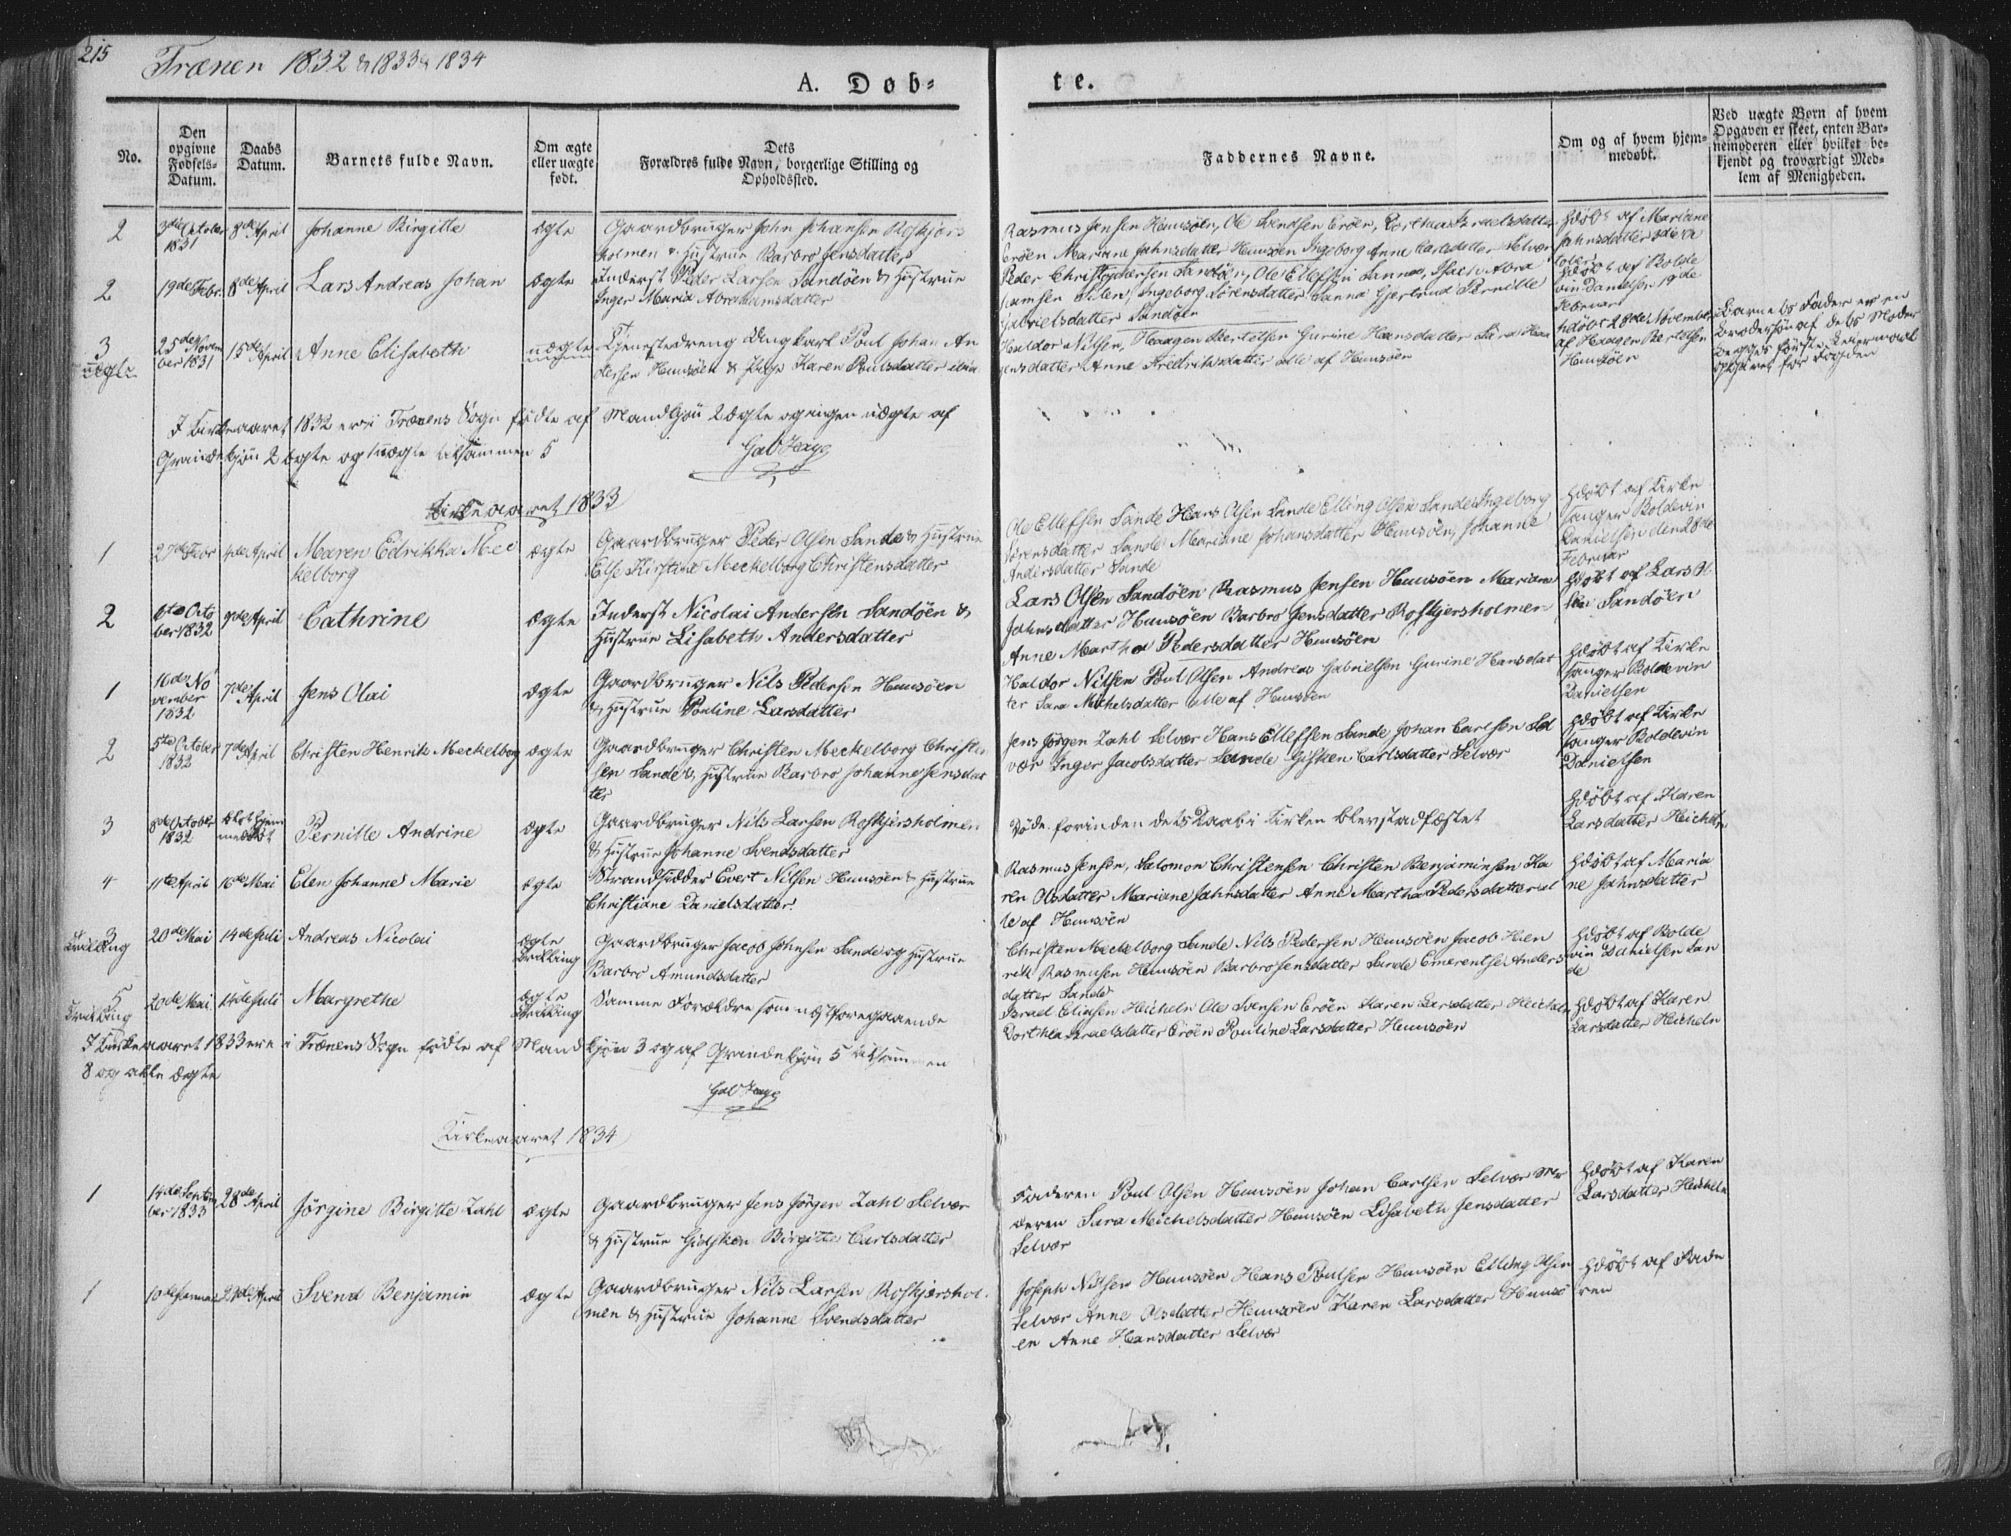 215
Trænen 1832 & 1833 & 1834
A. Døb-
te.
No.
Den opgivne Fødsels-Datum.
Daabs Datum.
Barnets fulde Navn.
Om ægte eller uægte født.
Dets Forældres fulde Navn, borgerlige Stilling og Opholdssted.
Faddernes Navne.
Om og af hvem hjem-medøbt.
Ved uægte Børn af hvem Opgaven er skeet, enten Bar-nemoderen eller hvilket be-kjendt og troværdigt Med-lem af Menigheden.
2
3die October 1831
8de April
Johanne Birgitte
ægte
Gaardbruger John Johansen Roskjørs
holmen & Hustrue Barbro Jensdatter
Rasmus Jensen Huusøen, Ole Svendsen Erøen, Dorthea Israelsdatter
Erøen Mariane Jahnsdatter Huusøen Ingeborg Anne Carlsdatter Selvær
Hdøbt af Mariane
Jahnsdatter 3die October
2
19de Febr.
8de April
Lars Andreas Johan
ægte
Inderst Peder Larsen Sandøen & Hustrue
Inger Maria Abrahamsdatter
Peder Christophersen Sandøen, Ole Ellefsen Sanna, Isac Abra
hamsen Ingeborg Sørensdatter Sanna Gjertrud Pernille
Gabrielsdatter Sandøen
Hdøbt af Bolde
vin Danielsen 19de
Februari
3
uægte
25de Novem
ber 1831
15de April
Anne Elisabeth
uægte
Tjenestedreng Ungkarl Poul Johan An
dersen Huusøen & Pige Karen Poulsdatter ibid
Haldor Nilsen, Haagen Bertelsen Gurine Hansdatter Sara Haa
gensdatter Anne Fredriksdatter alle af Huusøen
Hdøbt 28de November
af Haagen Bertelsen
Huusøen
Barnets Fader er en
Brodersøn af dets Moder
begges første Leiermaal
opgivet for Fogden
I Kirkeaaret 1832 ere i Trænens Sogn fødte af Mandkjøn 2 ægte og ingen uægte af
Qvindekjøn 2 ægte og 1 uægte tilsammen 5
Kirkeaaret 1833
1
27de Febr
4de April
Maren Edrikka Mec
kelborg
ægte
Gaardbruger Peder Olsen Sande & Hustrue
Else Kirstina Meckelborg Christensdatter
Ole Ellefsen Sande Hans Olsen Sande Elling Olsen Sande Ingeborg
Sørensdatter Sande Mariane Johansdatter Huusøen, Johanne
Andersdatter Sande
Hdøbt af Kirke
sanger Boldevin
Danielsen den 28de
Februar
2
6te Octo
ber 1832
9de April
Cathrine
ægte
Inderst Nicolai Andersen Sandøen &
Hustrue Lisabeth Andersdatter
Lars Olsen Sandøen Rasmus Jensen Huusøen Mariane
Jahnsdatter Huusøen Barbro Jensdatter Roskjersholmen
Anne Martha Pedersdatter Huusøen
Hdøbt af Lars Ol
sen Sandøen
1
16de No
vember
1832
7de April
Jens Olai
ægte
Gaardbruger Nils Pedersen Huusøen
& Hustrue Pouline Larsdatter
Haldor Nilsen Poul Olsen Andreas Gabrielsen Gurine Hansdat
ter Sara Michelsdatter alle af Huusøen
Hdøbt af Kirke
sanger Boldevin
Danielsen
2
5te October
1832
7de April
Christen Henrik Meckelborg
ægte
Gaardbruger Christen Meckelborg Christen
sen Sande & Hustrue Barbro Johanne Jensdat
ter
Jens Jørgen Zahl Selvær Hans Ellefsen Sande Johan Carlsen Sel
vær Inger Jacobsdatter Sande Gisken Carlsdatter Selvær
Hdøbt af Kirke
sanger Boldevin
Danielsen
3
8de October
1832
Blot hjem
medøbt
Pernille Andrine
ægte
Gaardbruger Nils Larsen Roskjersholmen
& Hustrue Johanne Svendsdatter
Døde forinden dets Daab i Kirken blev stadfæstet
Hdøbt af Karen
Larsdatter Heicheln
4
11te April
16de Mai
Elen Johanne Marie
ægte
Strandsidder Evert Nilsen Huusøen & Hustrue
Christiane Danielsdatter
Rasmus Jensen, Salomon Christensen Christen Benjaminsen Ka
ren Olsdatter Mariane Jahnsdatter Anne Martha Pedersdatter al
le af Huusøen
Hdøbt af Maria
ne Jahnsdatter
3
Tvilling
20de Mai
14de Juli
Andreas Nicolai
ægte
Tvilling
Gaardbruger Jacob Johnsen Sande og Hustrue
Barbro Amundsdatter
Christen Meckelborg Sande Nils Pedersen Huusøen Jacob Hen
rik Rasmusen Huusøen Barbro Jensdatter Sande Emerentse Anders
datter Sande
Hdøbt af Bolde
vin Danielsen San
de
5
Tvilling
20de Mai
14de Juli
Margrethe
ægte
Tvilling
Samme Forældre som næstforegaaende
Israel Eliasen Heicheln Ole Svensen Erøen Karen Larsdatter Heicheln
Dorthea Israelsdatter Erøen Pouline Larsdatter Huusøen
Hdøbt af Karen
Larsdatter Heicheln
I Kirkeaaret 1833 ere i Trænens Sogn fødte af Mandkjøn 3 og af Qvindekjøn 5 tilsammen
8 og alle ægte
Kirkeaaret 1834
1
14de Septem
ber 1833
28de April
Jørgine Birgitte Zahl
ægte
Gaardbruger Jens Jørgen Zahl Selvær
& Hustrue Gidsken Birgitte Carlsdatter
Faderen Poul Olsen Huusøen Johan Carlsen Selvær Mo
deren Sara Michelsdatter Huusøen Lisabeth Jensdatter
Selvær
Hdøbt af Karen
Larsdatter Heicheln
1
10de Januar
29de April
Svend Benjamin
ægte
Gaardbruger Nils Larsen Roskjershol-
men & Hustrue Johanne Svendsdatter
Joseph Nilsen Huusøen Hans Poulsen Huusøen Elling Olsen
Selvær Anne Olsdatter Huusøen Karen Larsdatter Huusø
en Anne Hansdatter Selvær
Hdøbt af Fade
ren